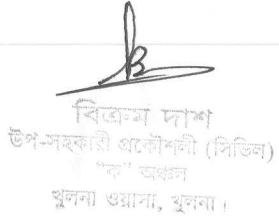 বিক্রম দাশ
উপ-সহকারী প্রকৌশলী (সিভিল)
"ক" অঞ্চল
খুলনা ওয়াসা, খুলনা।